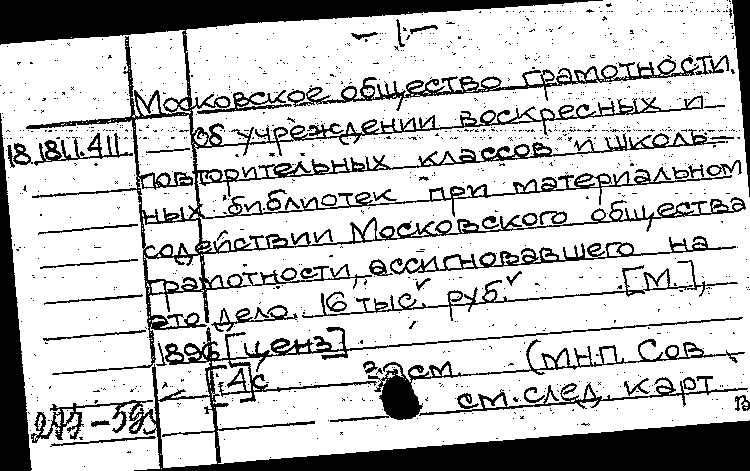 — 1 —
Московское общество грамотности.
18.181.1.411 Об учреждении воскресных и
повторительных классов и школь-
ных библиотек при материальном
содействии Московского общества
грамотности, ассигновавшего на
это дело 16 тыс. руб. [М.],
1896 [ценз]
[4] с см. (М.Н.П. Сов
см. след. карт